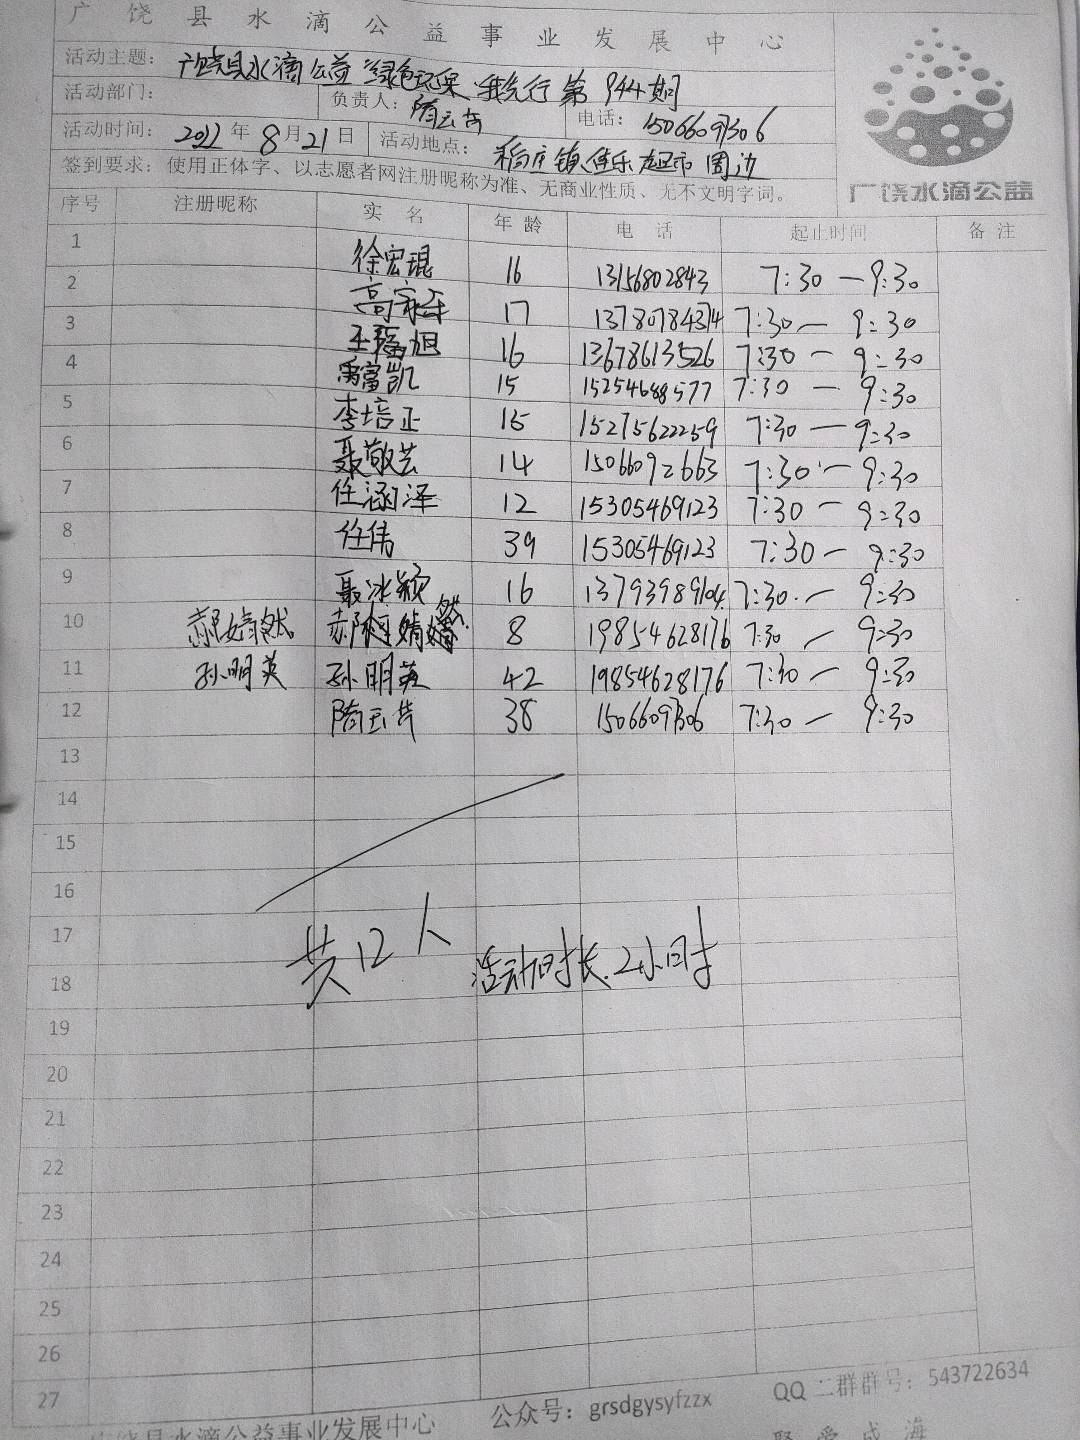 广饶县水滴公益事业发展中心
活动主题：广饶县水滴公益"绿色环保·我先行 第944期
活动部门： 负责人：隋云芳 电话：15066097306
活动时间：2022年8月21日 活动地点：稻庄镇佳乐超市周边
签到要求：使用正体字、以志愿者网注册昵称为准、无商业性质、无不文明字词。
广饶水滴公益
序号 注册昵称 实 名 年 龄 电 话 起止时间 备 注
1 徐宏琨 16 13156802843 7:30 — 9:30
2 高家 17 7:30 — 9:30
3 王 旭 16 13678613526 7:30 — 9:30
4 禹富凯 15 15254688577 7:30 — 9:30
5 李培正 15 15275622259 7:30 — 9:30
6 聂敬芸 14 15066092663 7:30 — 9:30
7 任涵泽 12 15305469123 7:30 — 9:30
8 任伟 39 15305469123 7:30 — 9:30
9 聂冰颖 16 13793989104 7:30 — 9:30
10 郝婧然 郝婧然 8 19854628176 7:30 — 9:30
11 孙明英 孙明英 42 19854628176 7:30 — 9:30
12 隋云芳 38 15066097306 7:30 — 9:30
13
14
15
16
17
共12人
18
活动时长.2小时
19
20
21
22
23
24
25
26
27
饶县水滴公益事业发展中心 公众号：grsdgysyfzzx QQ二群群号：543722634
聚 爱 成 海